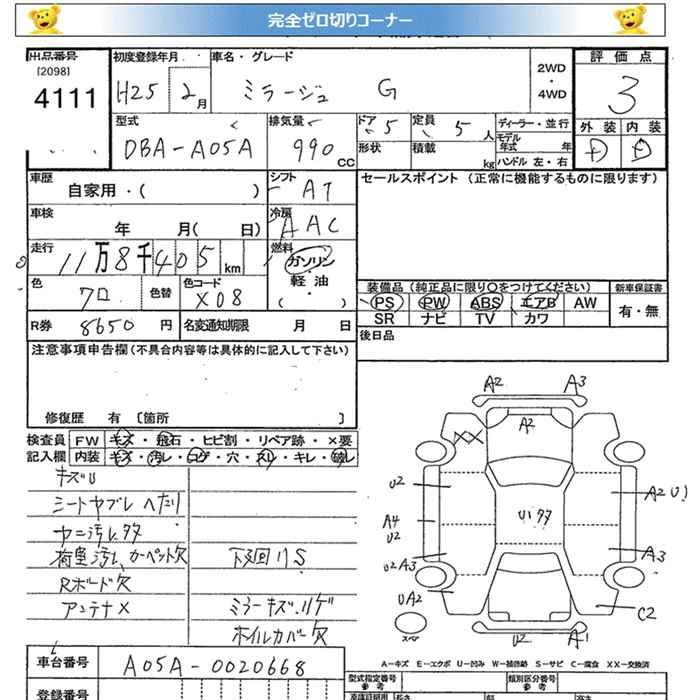 完全ゼロ切りコーナー
出品番号 初度登録年月 車名・グレード 2WD・4WD 評価点
[2098]
4111 H25 2月 ミラージュ G 3
型式 排気量 ドア 5 定員 5人 ディーラー・並行 外装 内装
DBA-A05A 990 CC 形状 積載 kg モデル年式 年 ハンドル 左・右 D D
車歴 シフト AT セールスポイント (正常に機能するものに限ります)
自家用・( )
車検 冷房 AAC
年 月( 日)
走行 11万8千405km 燃料 ガソリン・軽油・( )
色 クロ 色替 色コード X08 装備品(純正品に限り○をつけてください) 新車保証書
PS PW ABS エアB AW 有・無
R券 8650円 名変通知期限 月 日 SR ナビ TV カワ
注意事項申告欄(不具合内容等は具体的に記入して下さい) 後日品
修復歴 有 [箇所 ]
検査員 FW キズ・飛石・ヒビ割・リペア跡・×要
記入欄 内装 キズ・汚レ・コゲ・穴・スレ・キレ・破レ
キズU
シートヤブレ ヘタリ
ヤニ汚レ多
荷室汚レ カーペット欠 下廻リS
Rボード欠
アンテナ× ミラーキズ.リゲ
ホイルカバー欠
A2 A3
A2
XX
U2 A2 U1
A4 U2 U1多
U2 A3 A3
UA2 C2
スペア U2 A1
A-キズ E-エクボ U-凹み W-補修跡 S-サビ C-腐食 XX-交換済
車台番号 A05A-0020668
型式指定番号 類別区分番号
参考 参考
登録番号 車検証期間 長さ 幅 高さ